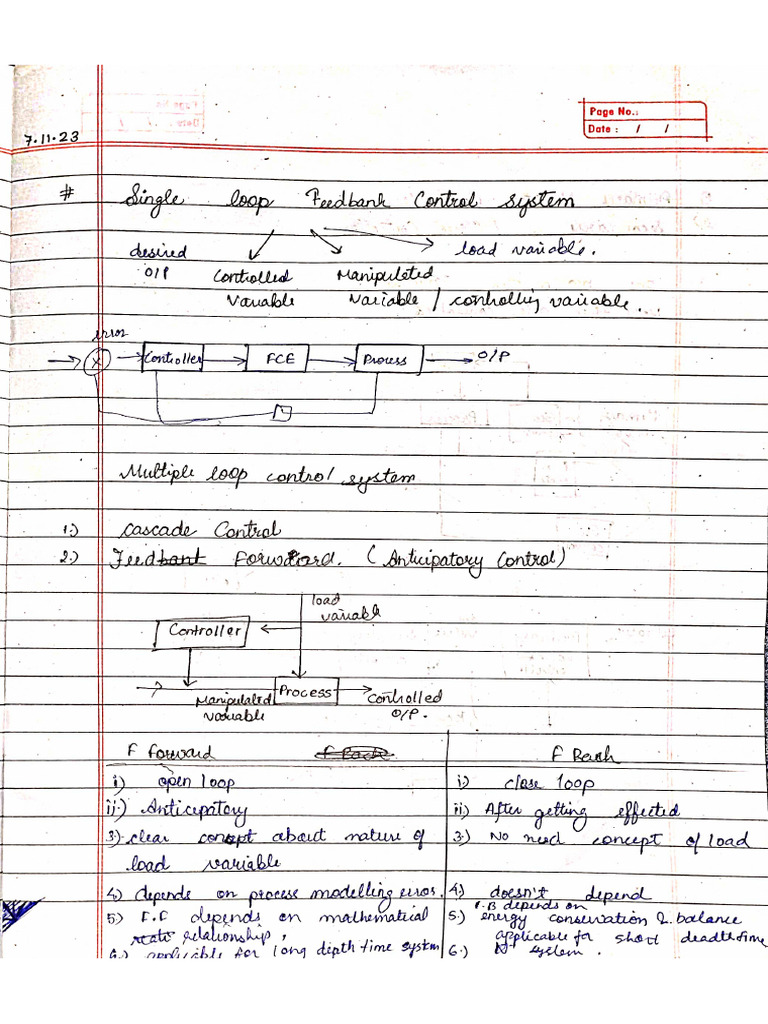 Page No.:
Date : / /
7.11.23
# Single loop Feedbank Control system
desired load variable.
O/P Controlled Manipulated
Variable Variable / controlling variable...
error
X Controller FCE Process O/P
Multiple loop control system
1.) Cascade Control
2.) Feedbank Forward. (Anticipatory Control)
load
variable
Controller
Process Controlled
Manipulated
variable O/P.
F Forward F Back F Back
i) open loop i) close loop
ii.) Anticipatory ii) After getting effected
3.) clear concept about nature of 3.) No need concept of load
load variable
4.) depends on process modelling error. 4.) doesn't depend
F.B depends on
5) F.F depends on mathematical 5.) energy conservation & balance
relationship, applicable for short deadthtime
6.) applicable for long depth time system 6.) system.